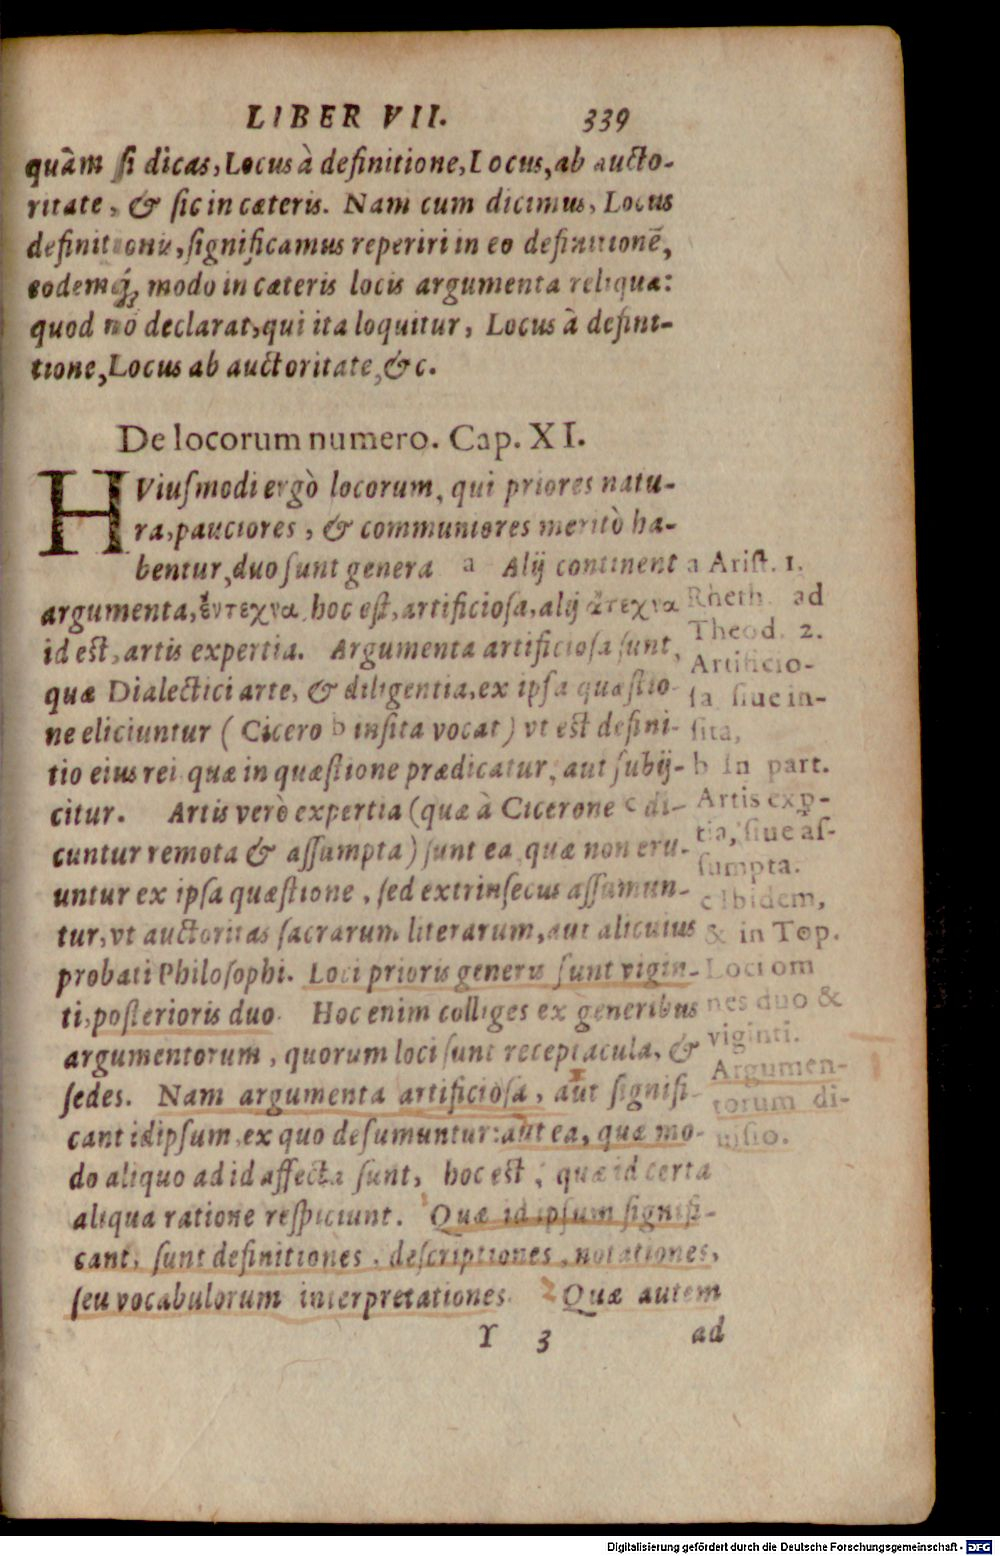 LIBER VII. 339
quàm ſi dicas, Locus à definitione, Locus, ab aucto-
ritate, & ſic in cæteris. Nam cum dicimus, Locus
definitionis, ſignificamus reperiri in eo definitionē,
eodemq́; modo in cæteris locis argumenta reliqua:
quod nō declarat, qui ita loquitur, Locus à defini-
tione, Locus ab auctoritate, & c.
De locorum numero. Cap. XI.
HViuſmodi ergò locorum, qui priores natu-
ra, pauciores, & communiores meritò ha-
bentur, duo ſunt genera a Alij continent
argumenta, ἔντεχνα, hoc eſt, artificioſa, alij ἄτεχνα
id eſt, artis expertia. Argumenta artificioſa ſunt,
quæ Dialectici arte, & diligentia, ex ipſa quæſtio-
ne eliciuntur ( Cicero b inſita vocat ) vt eſt defini-
tio eius rei quæ in quæſtione prædicatur, aut ſubij-
citur. Artis verò expertia (quæ à Cicerone c di-
cuntur remota & aſſumpta) ſunt ea quæ non eru-
untur ex ipſa quæſtione, ſed extrinſecus aſſumun-
tur, vt auctoritas ſacrarum literarum, aut alicuius
probati Philoſophi. Loci prioris generis ſunt vigin-
ti, poſterioris duo. Hoc enim colliges ex generibus
argumentorum, quorum loci ſunt receptacula, &
ſedes. Nam argumenta artificioſa, aut ſignifi-
cant idipſum, ex quo deſumuntur: aut ea, quæ mo-
do aliquo ad id affecta ſunt, hoc eſt, quæ id certa
aliqua ratione reſpiciunt. Quæ id ipſum ſignifi-
cant, ſunt definitiones, deſcriptiones, notationes,
ſeu vocabulorum interpretationes. Quæ autem
Y 3 ad
a Ariſt. 1.
Rheth. ad
Theod. 2.
Artificio-
ſa ſiue in-
ſita,
b In part.
Artis exp̱-
tia, ſiue aſ-
ſumpta.
c Ibidem,
& in Top.
Loci om
nes duo &
viginti.
Argumen-
torum di-
uiſio.
Digitalisierung gefördert durch die Deutsche Forschungsgemeinschaft - DFG